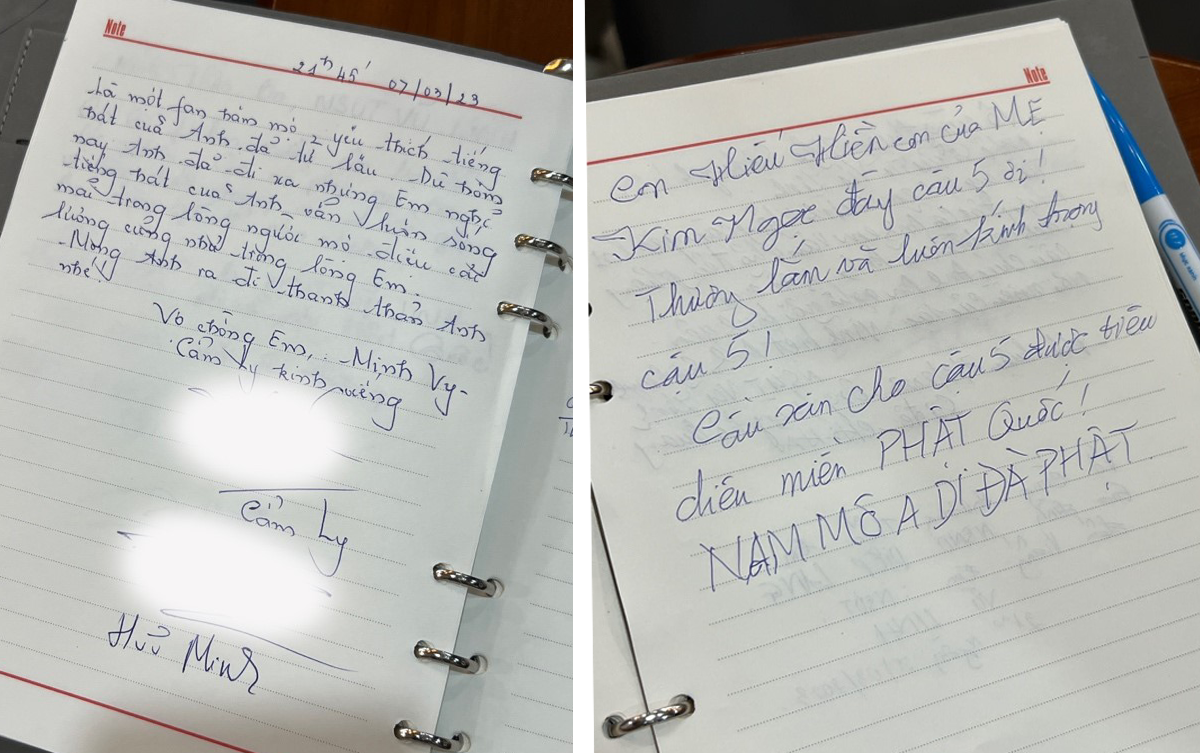 Note
21h 45' 07/03/23
Là một fan hâm mộ, yêu thích tiếng
hát của Anh đã từ lâu. Dù hôm
nay Anh đã đi xa nhưng Em nghĩ
tiếng hát của Anh vẫn luôn sống
mãi trong lòng người mộ điệu cải
lương cũng như trong lòng Em.
- Mong Anh ra đi thanh thản Anh
nhé
Vợ chồng Em, Minh Vy -
Cẩm Ly kính viếng
Cẩm Ly
Hữu Minh
Note
Con Hiếu Hiền con của MẸ
Kim Ngọc đây cậu 5 ơi!
Thương lắm và luôn kính trọng
cậu 5!
Cầu xin cho cậu 5 được tiêu
diêu miền PHẬT Quốc!
NAM MÔ A DI ĐÀ PHẬT